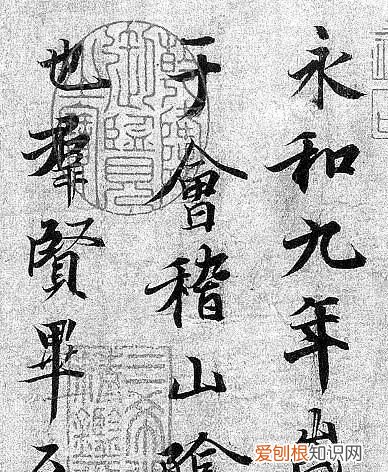 永和九年
于會稽山陰
也羣賢畢
爱刨根知识网